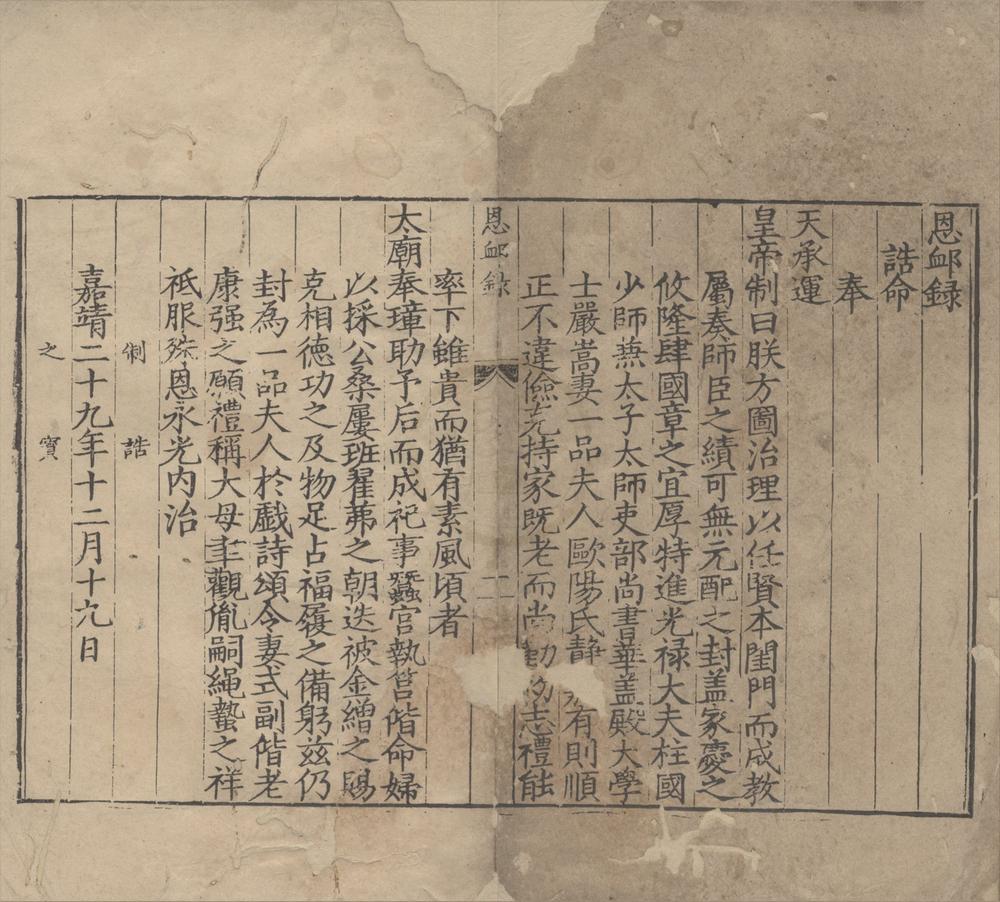 恩䘏録
誥命
奉
天承運
皇帝制曰朕方圖治理以任賢本閨門而成教
屬奏師臣之績可無元配之封蓋家慶之
攸隆肆國章之宜厚特進光禄大夫柱國
少師兼太子太師吏部尚書華盖殿大學
士嚴嵩妻一品夫人歐陽氏静有則順
正不違儉克持家既老而尚勤志禮能
恩䘏録
二
率下雖貴而猶有素風頃者
太廟奉璋助予后而成祀事蠶宫執筥偕命婦
以採公桑屢班翟茀之朝迭被金繒之賜
克相德功之及物足占福履之備躬兹仍
封為一品夫人於戲詩頌令妻式副偕老
康强之願禮稱大母聿觀胤嗣繩蟄之祥
祇服殊恩永光内治
制誥
嘉靖二十九年十二月十六日
之寳